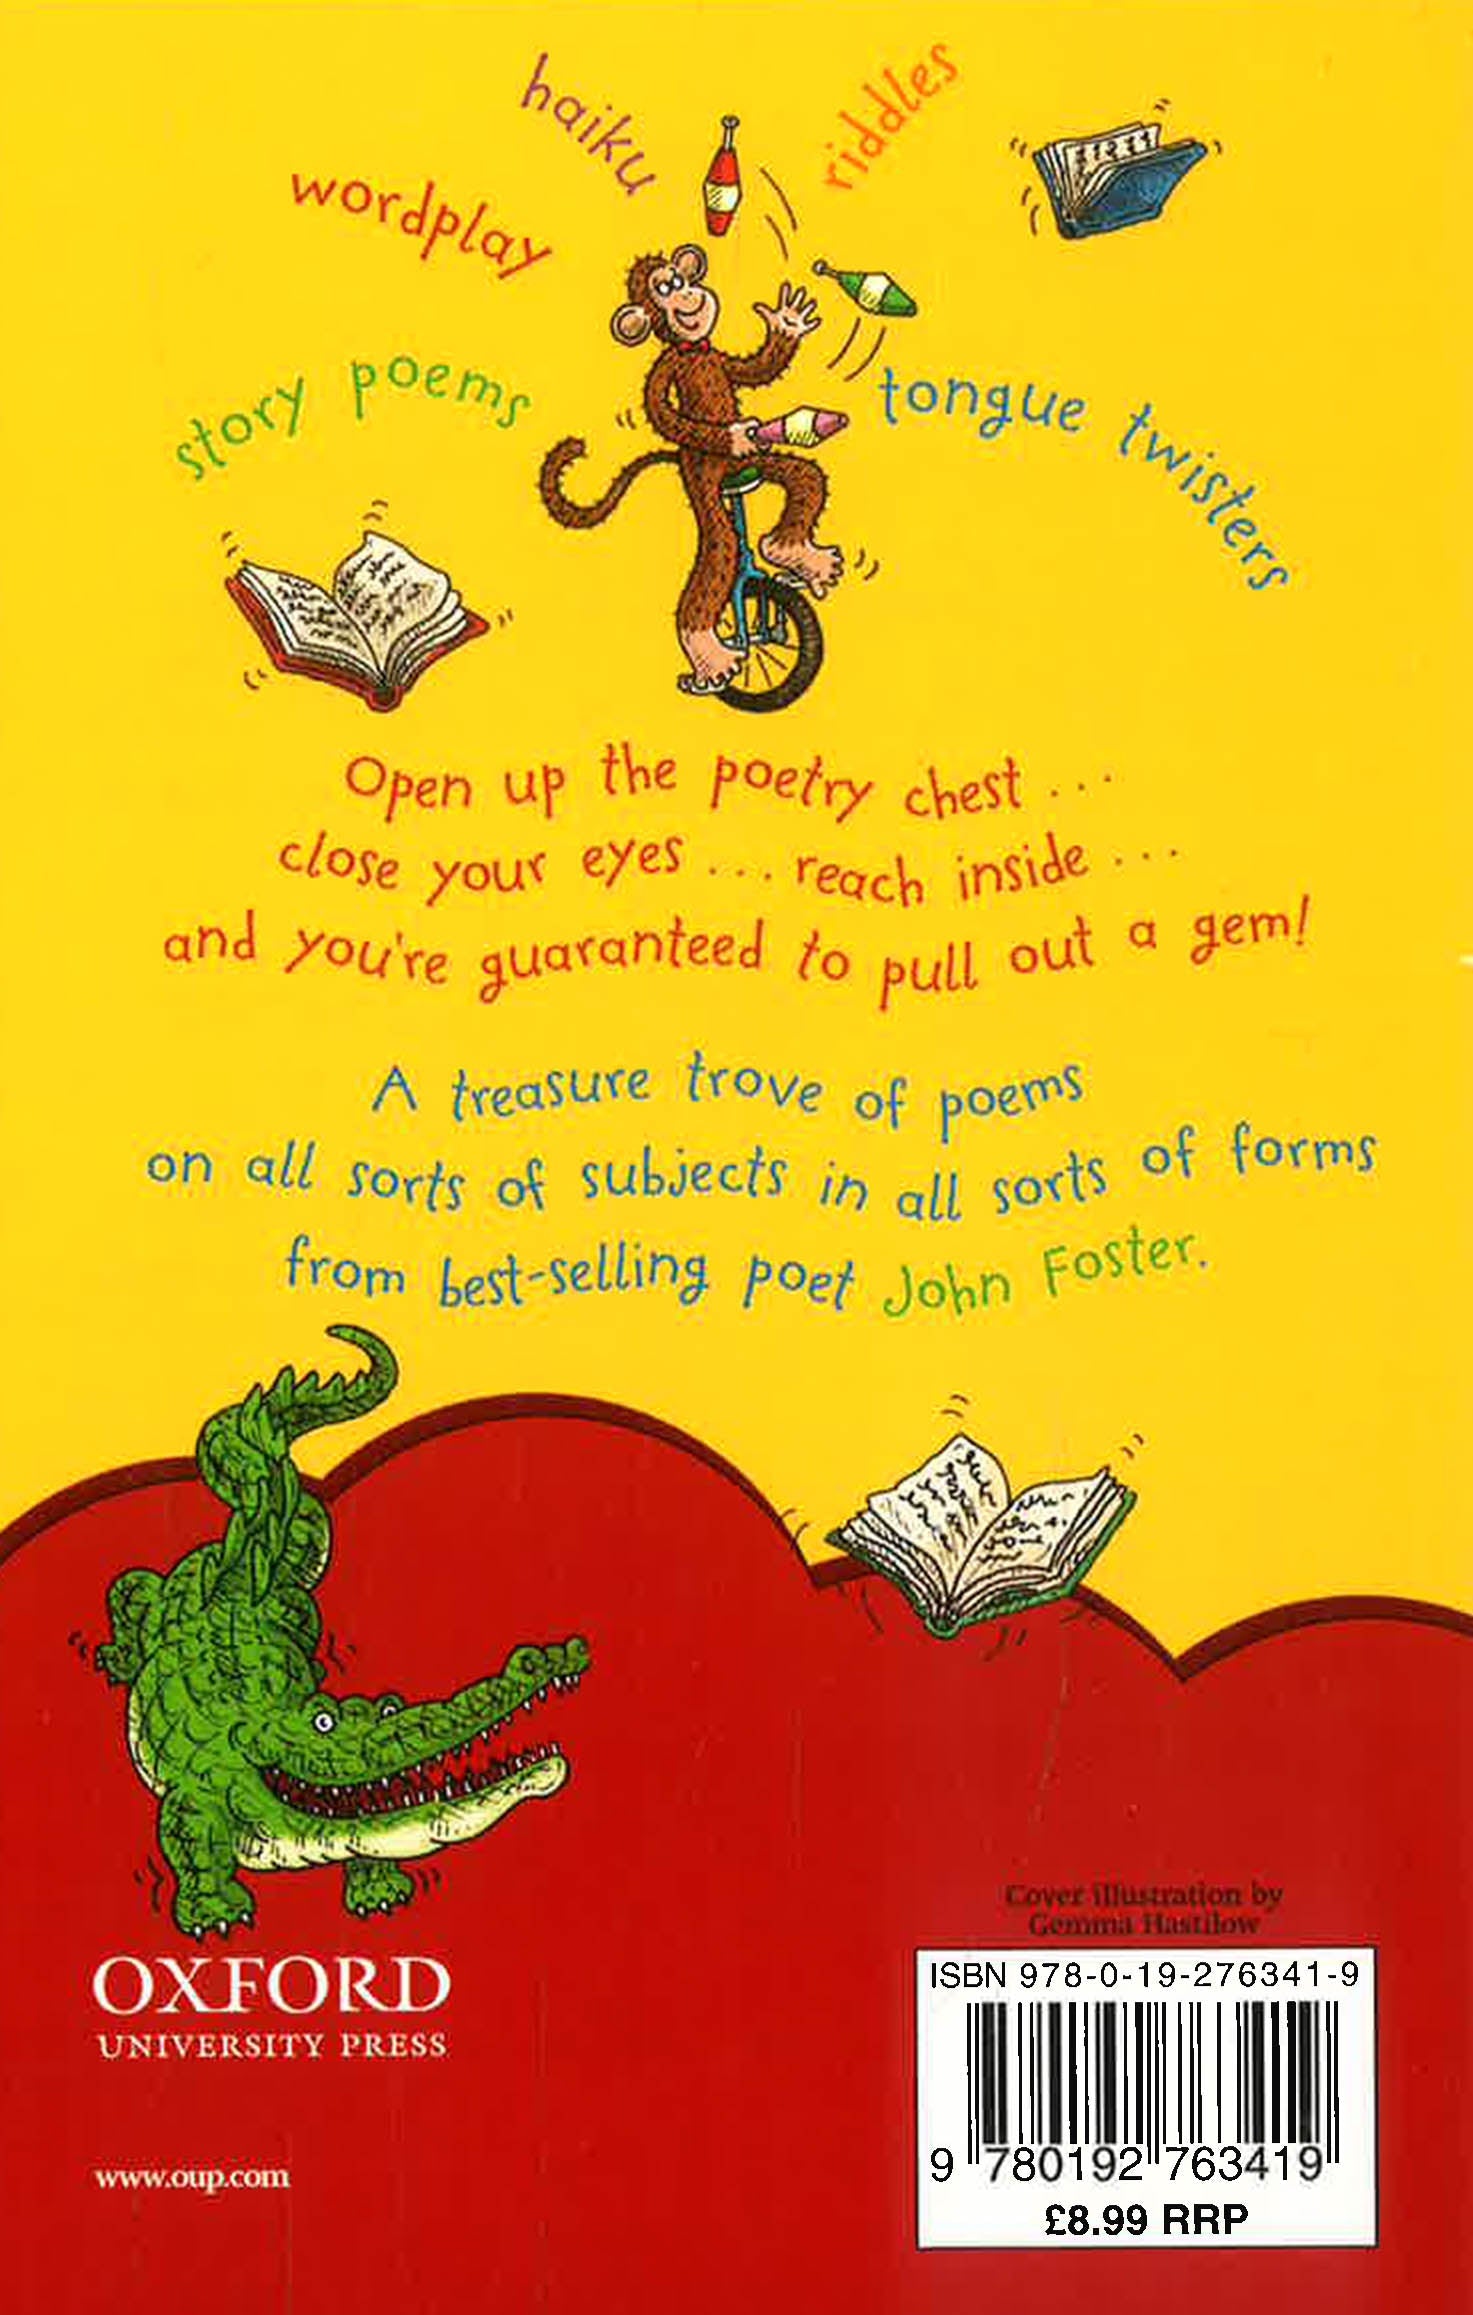 haiku
riddles
wordplay
story poems
tongue twisters
Open up the poetry chest ...
close your eyes ... reach inside ...
and you're guaranteed to pull out a gem!
A treasure trove of poems
on all sorts of subjects in all sorts of forms
from best-selling poet John Foster.
Cover illustration by
Gemma Hastilow
OXFORD
UNIVERSITY PRESS
www.oup.com
ISBN 978-0-19-276341-9
9 780192 763419
£8.99 RRP